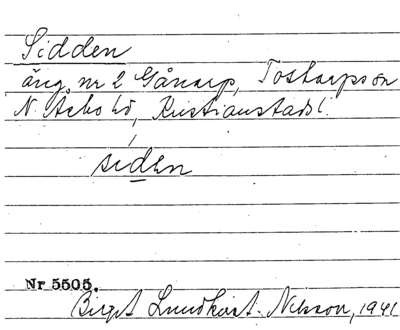 Sidden
äng nr 2 Gånarp, Tostarps sn
N. Åsbo hd, Kristianstads l.
siden
Nr 5505.
Birgit Lundkvist-Nilsson, 1941